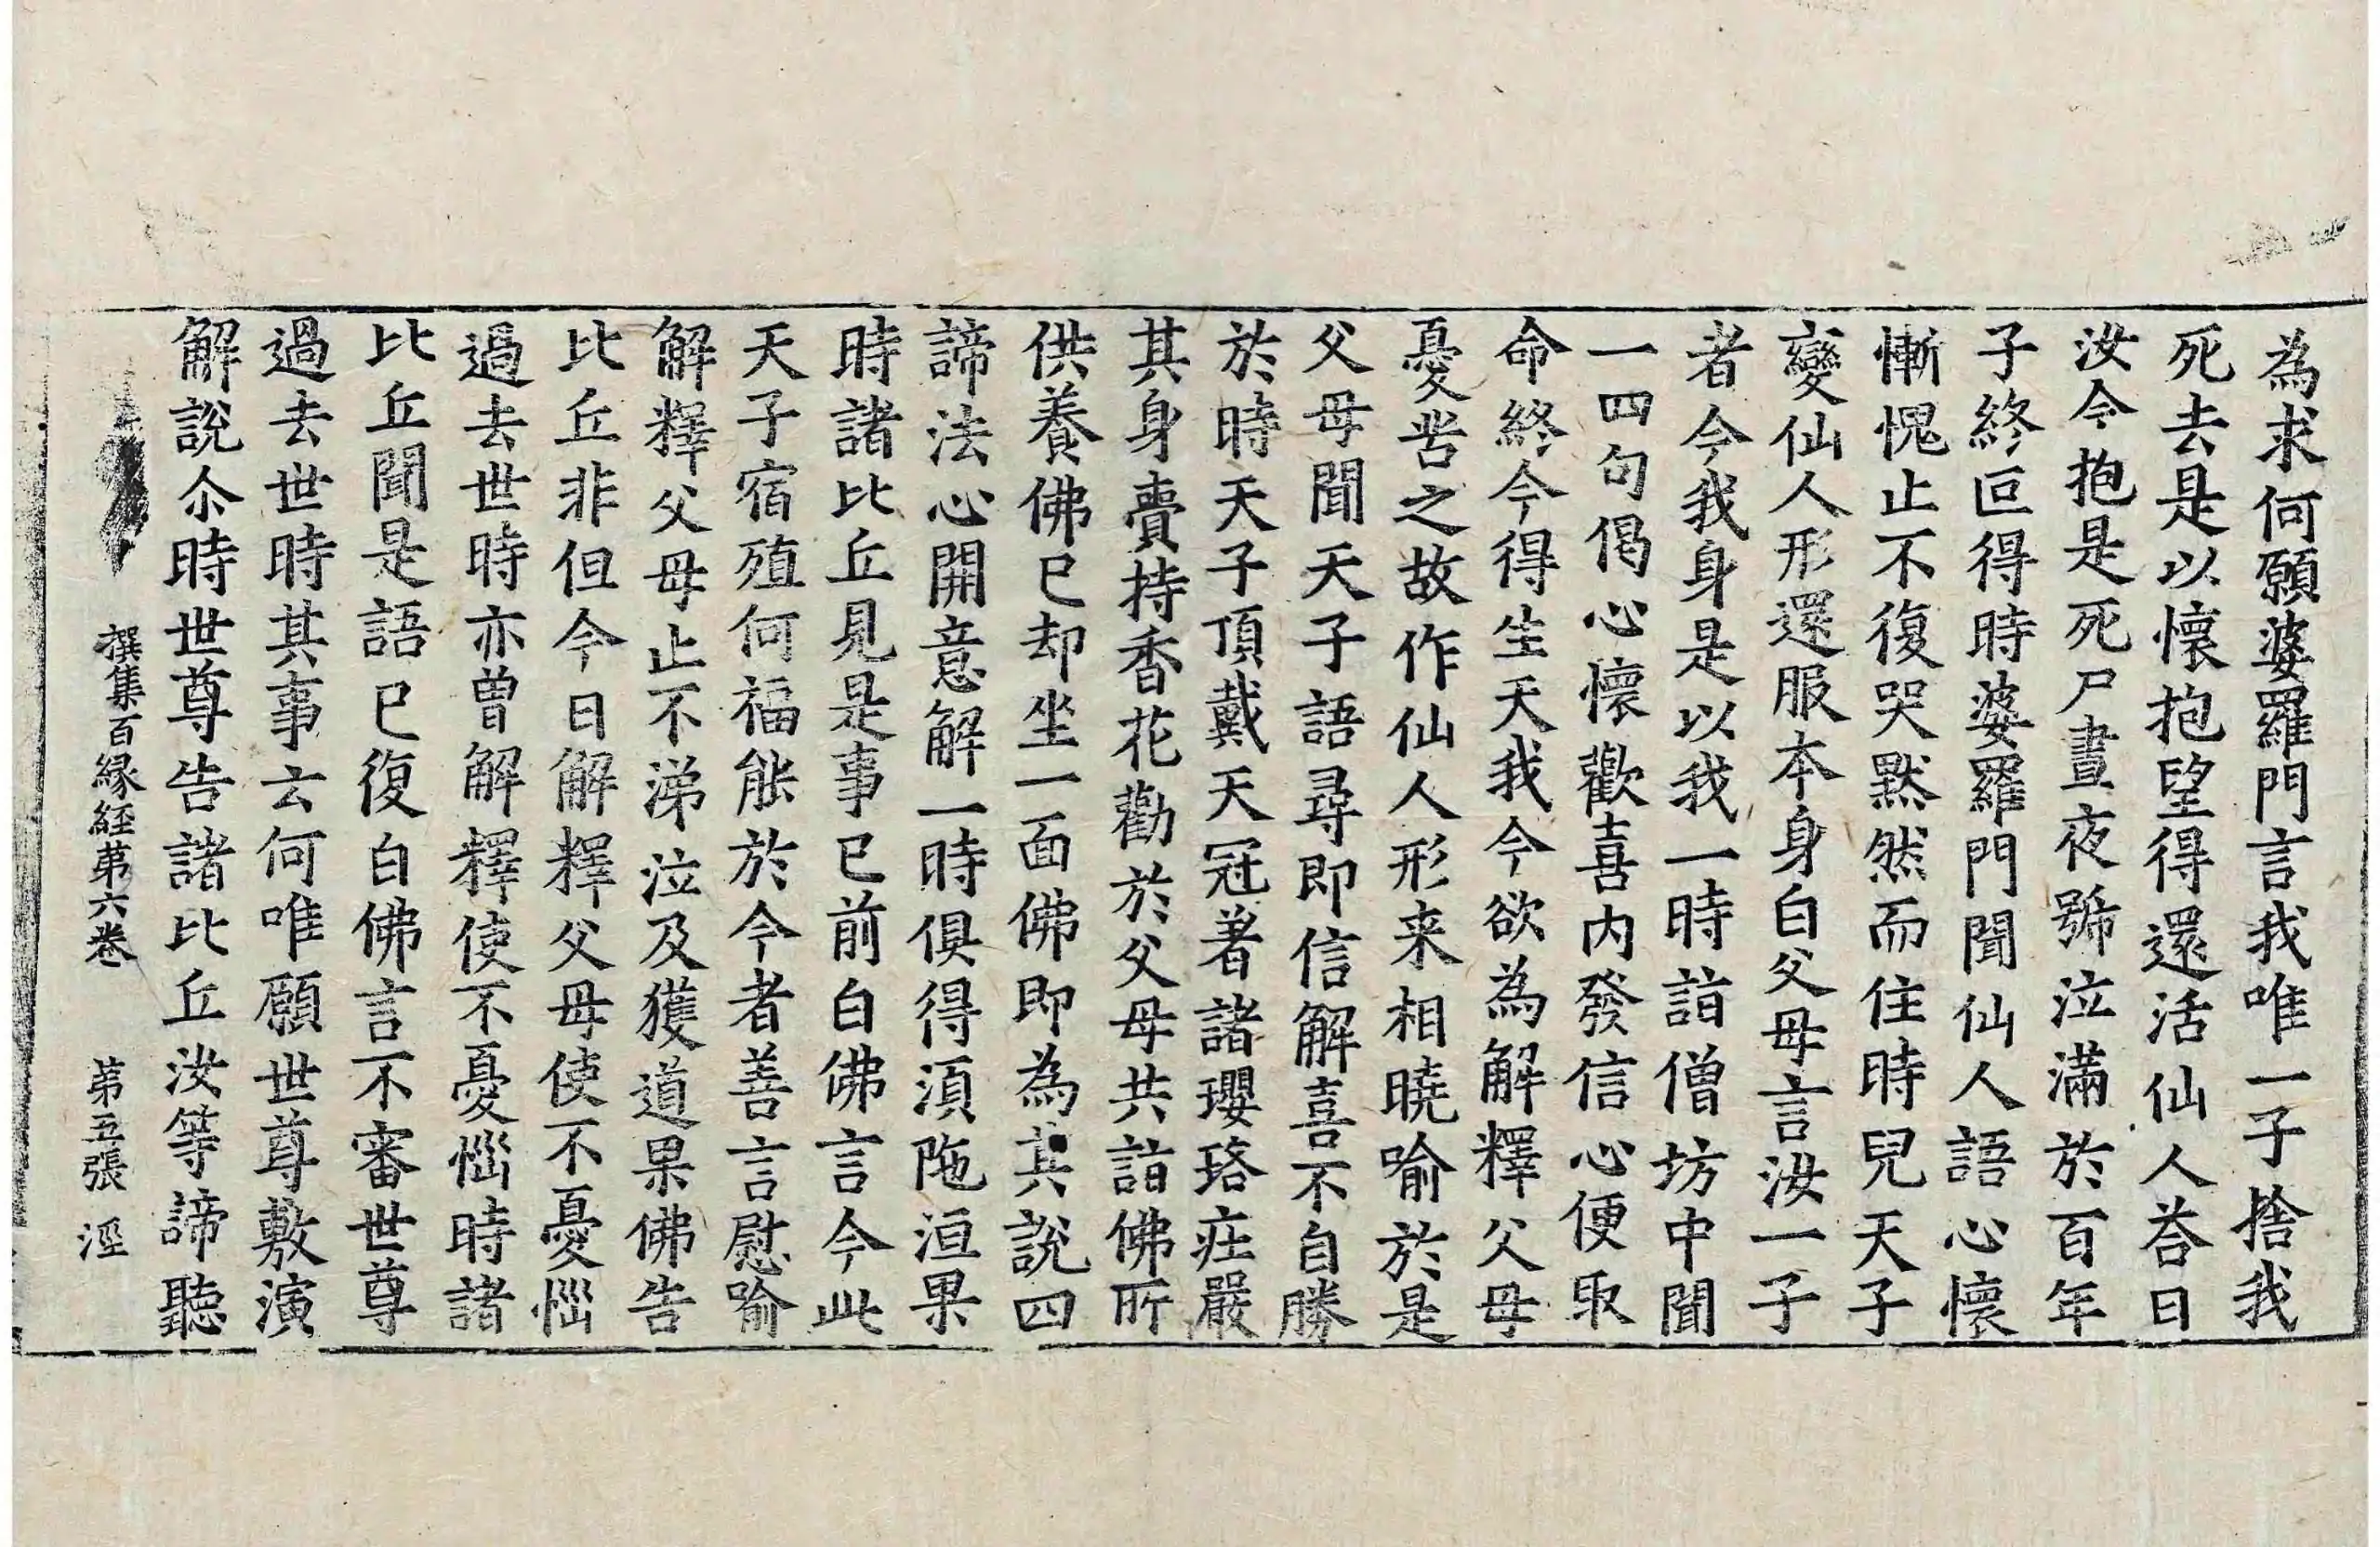 為求何願婆羅門言我唯一子捨我
死去是以懷抱望得還活仙人荅曰
汝今抱是死尸晝夜號泣滿於百年
子終叵得時婆羅門聞仙人語心懷
慚愧止不復哭默然而住時兒天子
變仙人形還服本身白父母言汝一子
者今我身是以我一時詣僧坊中聞
一四句偈心懷歡喜内發信心便取
命終今得生天我今欲為解釋父母
憂苦之故作仙人形来相曉喻於是
父母聞天子語尋即信解喜不自勝
於時天子頂戴天冠著諸瓔珞庄嚴
其身賷持香花勸於父母共詣佛所
供養佛已却坐一面佛即為其說四
諦法心開意解一時俱得湏陁洹果
時諸比丘見是事已前白佛言今此
天子宿殖何福能於今者善言慰喻
解釋父母止不涕泣及獲道果佛告
比丘非但今日解釋父母使不憂惱
過去世時亦曾解釋使不憂惱時諸
比丘聞是語已復白佛言不審世尊
過去世時其事云何唯願世尊敷演
解說尒時世尊告諸比丘汝等諦聽
撰集百縁経苐六卷 苐五張 涇